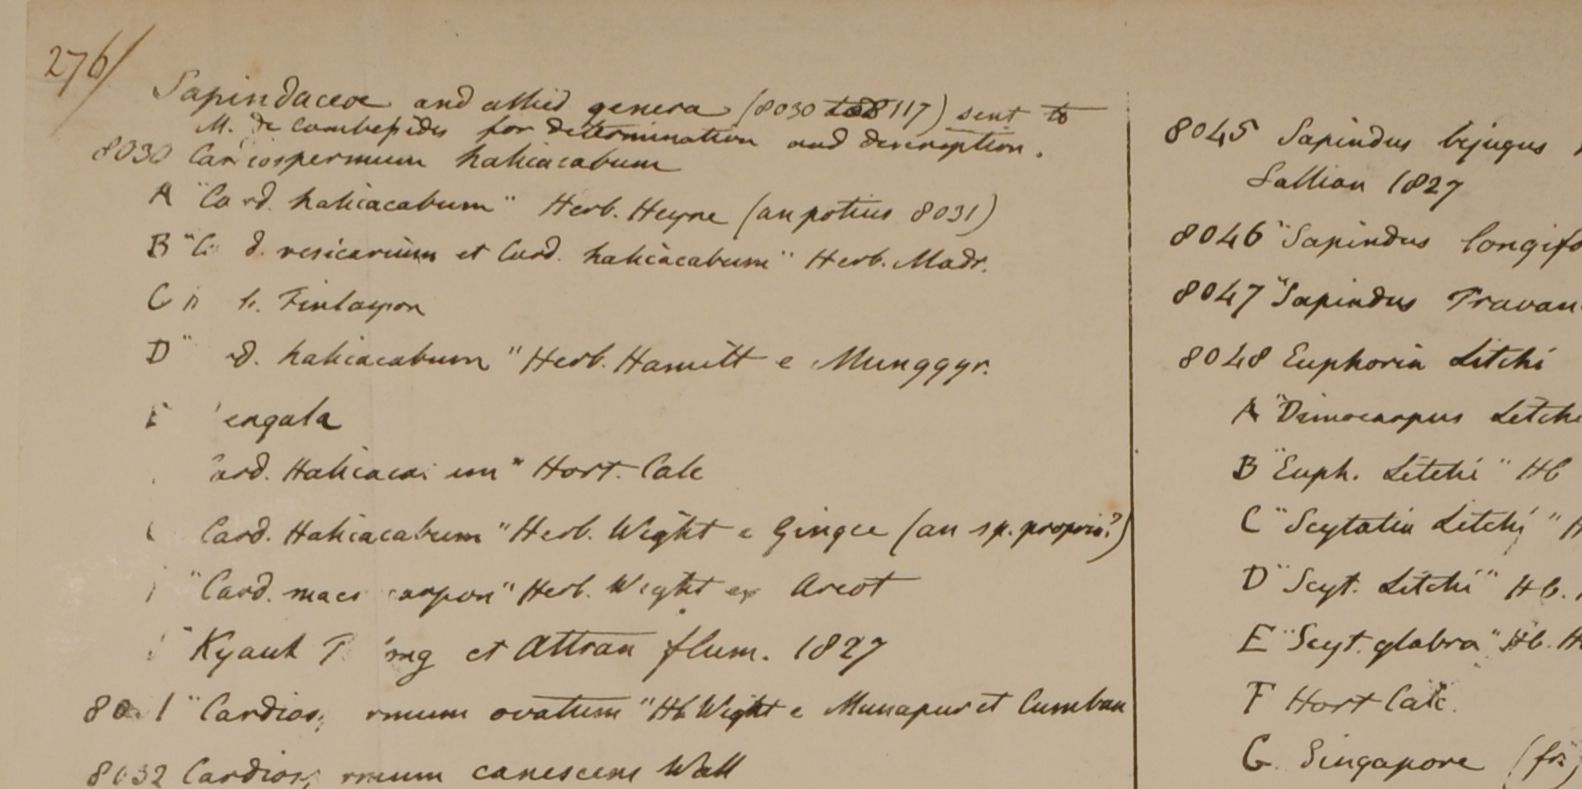 276/
Sapindaceae and allied genera (8030 to 8117) sent to
M. de Cambessides for determination and description.
8030 Cardiospermum halicacabum
A "Card. halicacabum" Herb. Heyne (an potius 8031)
B "C d. vesicarium et Card. halicacabum" Herb. Madr.
C b. Finlayson
D " d. halicacabum" Herb. Hamilt e Munggyr.
E engala
ard. Halicaca um" Hort. Calc
Card. Halicacabum" Herb. Wight e Gingee (an sp. propria?)
"Card. mac carpon" Herb. Wight ex Arcot
Kyauk T ng et Attran flum. 1827
80 1 "Cardios rmum ovatum" Hb Wight e Munapur et Cumbau
8032 Cardios rmum canescens Wall
8045 Sapindus bijugus
Sallian 1827
8046 "Sapindus longifo
8047 "Sapindus Travan
8048 Euphoria Litchi
A "Dimocarpus Litchi
B "Euph. Litchi" Hb
C "Scytalia Litchi" H
D "Scyt. Litchi" Hb.
E "Scyt. glabra" Hb. H
F Hort Calc.
G. Singapore (fr:)